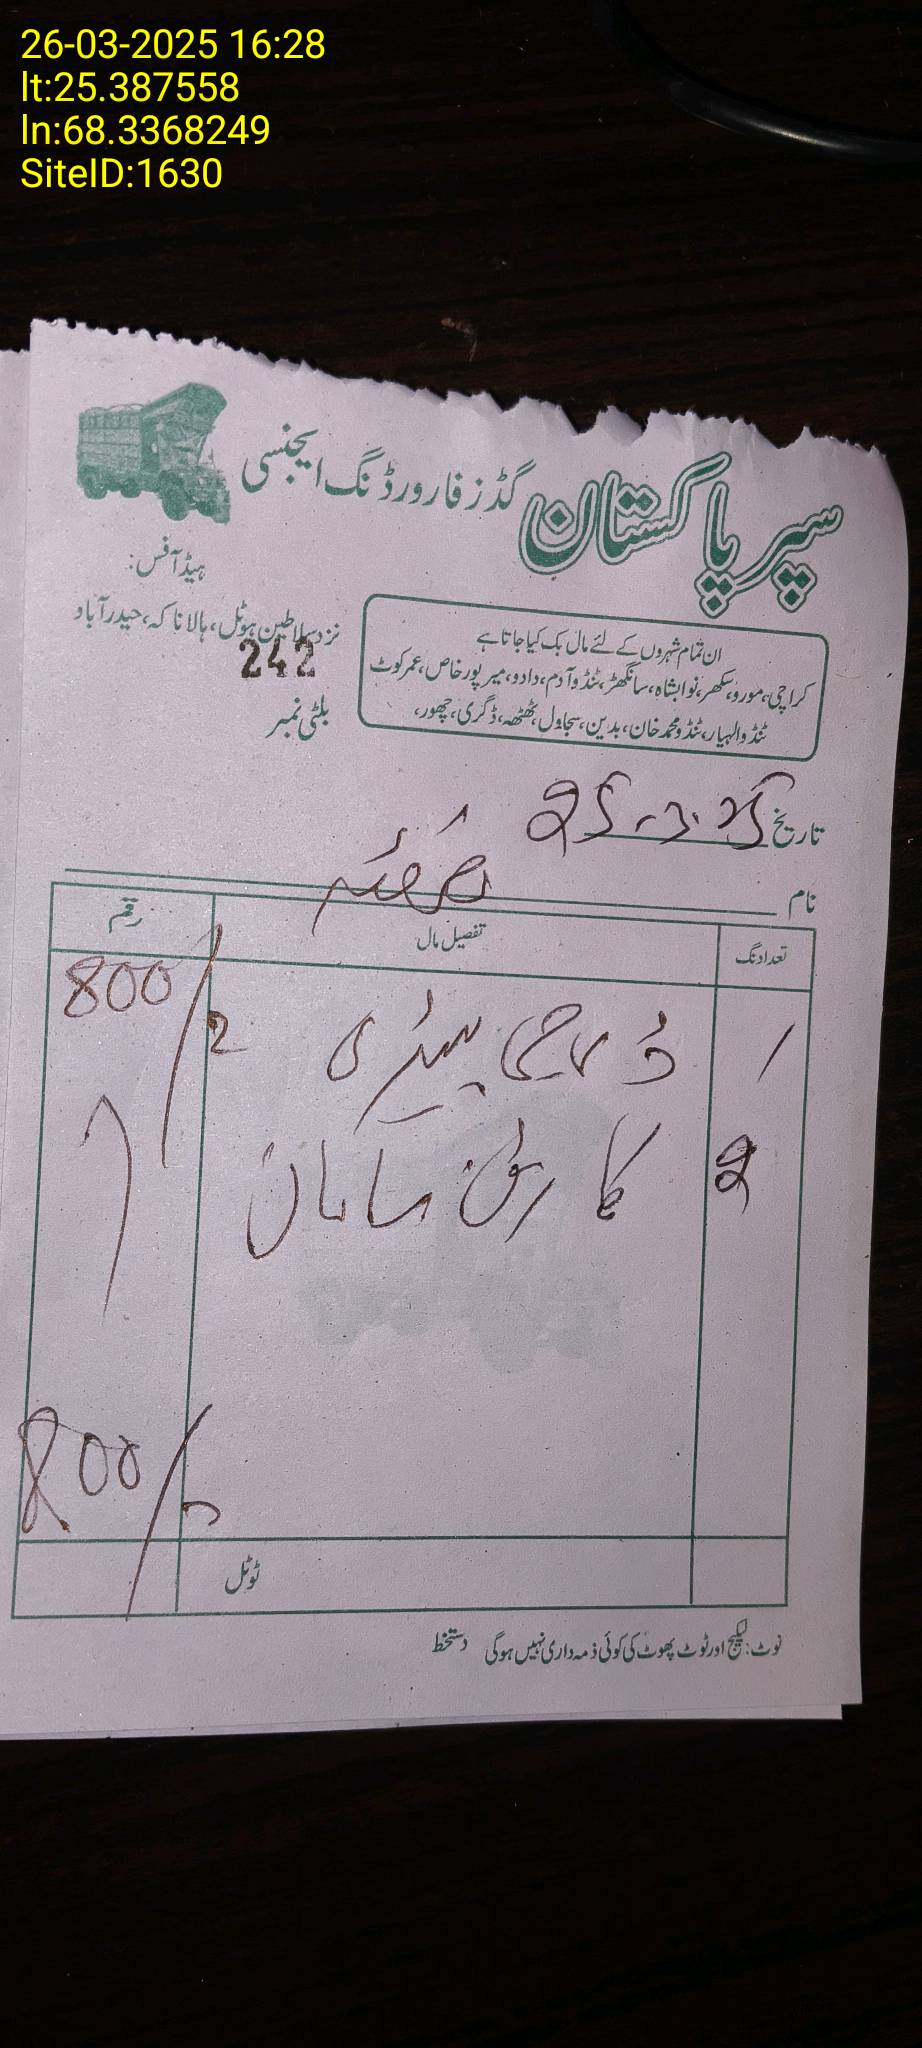 26-03-2025 16:28
lt:25.387558
ln:68.3368249
SiteID:1630
سپر پاکستان گڈز فارورڈنگ ایجنسی
ہیڈ آفس:
نزد سلاطین ہوٹل، ہالا ناکہ، حیدر آباد
ان تمام شہروں کے لئے مال بک کیا جاتا ہے
کراچی، مورو، سکھر، نوابشاہ، سانگھڑ، ٹنڈو آدم، دادو، میر پور خاص، عمر کوٹ
ٹنڈو الہیار، ٹنڈو محمد خان، بدین، سجاول، ٹھٹھہ، ڈگری، چھور،
242
بلٹی نمبر
تاریخ 25.3.25
نام
تعداد نگ تفصیل مال رقم
1 بیٹری 800/
2 کارٹن سامان
800/
ٹوٹل
نوٹ: لیکیج اور ٹوٹ پھوٹ کی کوئی ذمہ داری نہیں ہوگی دستخط